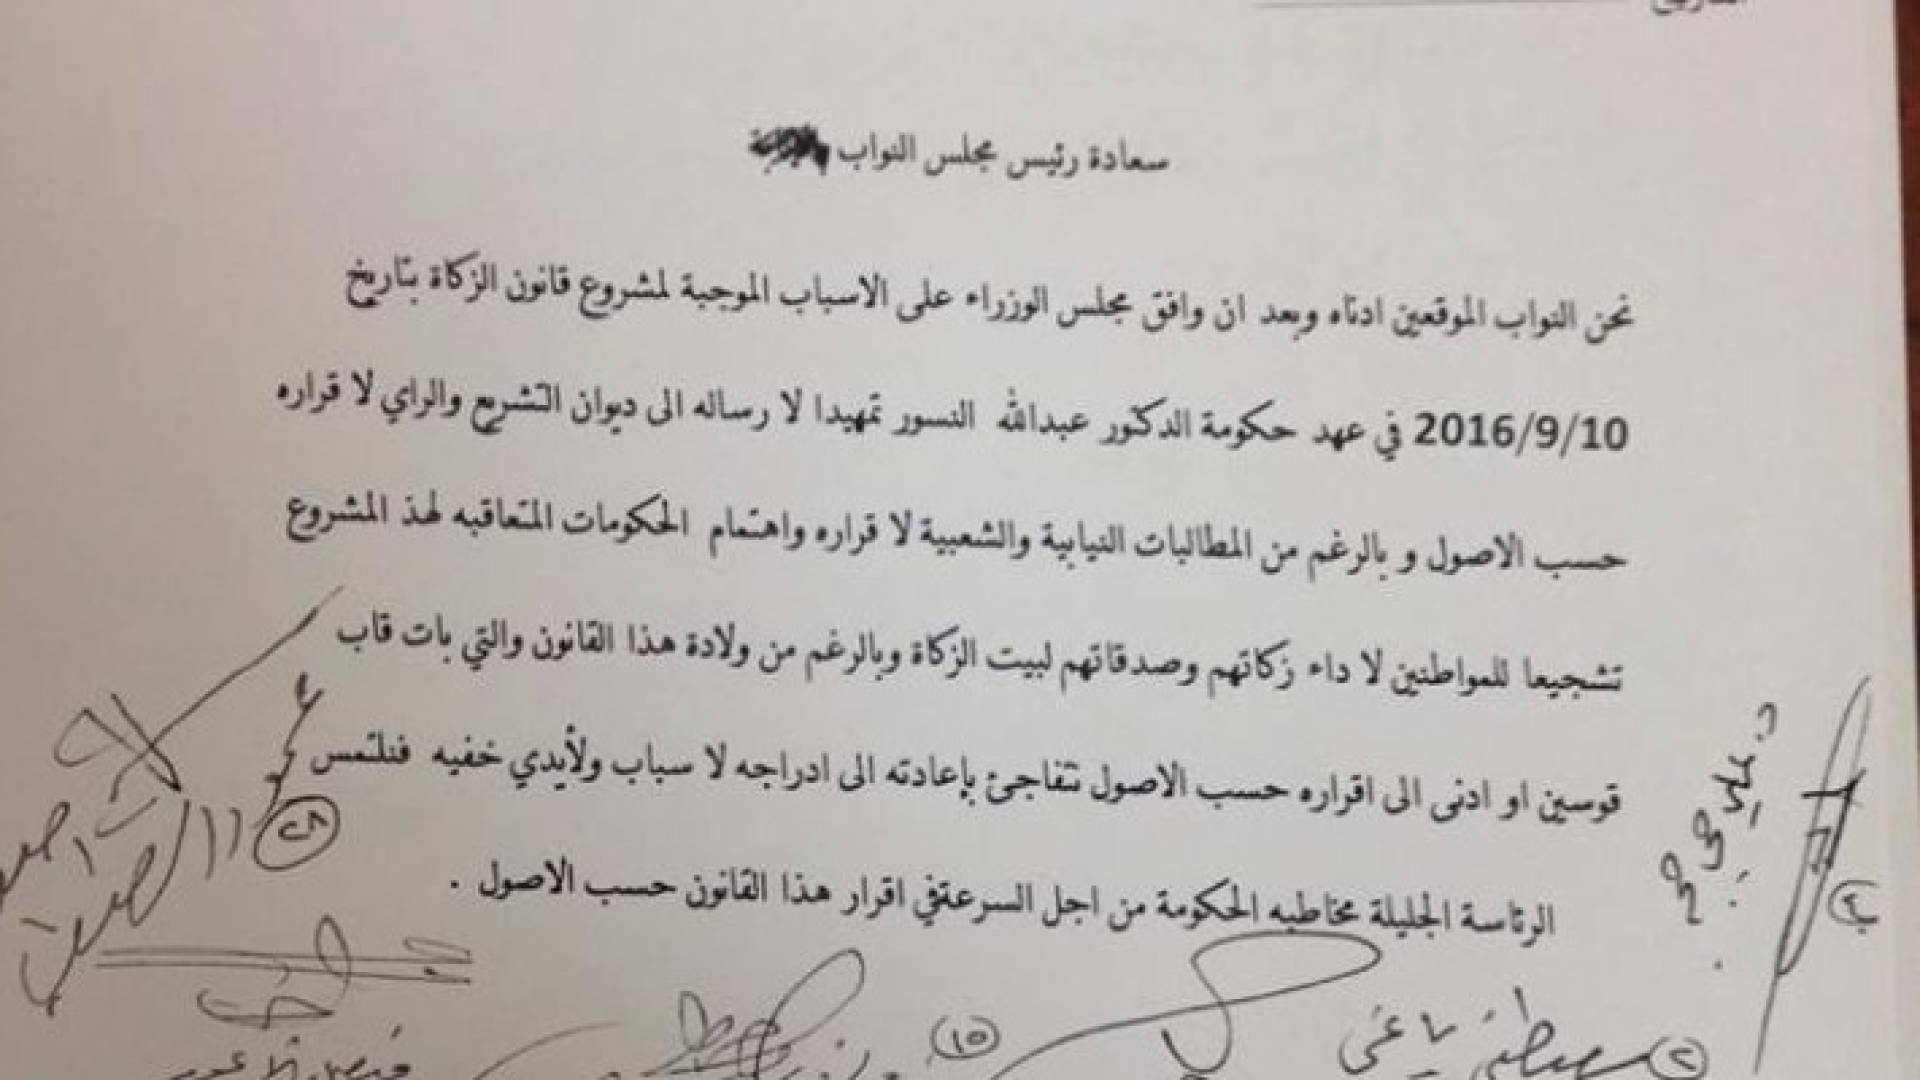 التاريخ
سعادة رئيس مجلس النواب
نحن النواب الموقعين ادناه وبعد ان وافق مجلس الوزراء على الاسباب الموجبة لمشروع قانون الزكاة بتاريخ
2016/9/10 في عهد حكومة الدكتور عبدالله النسور تمهيدا لا رساله الى ديوان التشريع والراي لا قراره
حسب الاصول و بالرغم من المطالبات النيابية والشعبية لا قراره واهتمام الحكومات المتعاقبه لهذ المشروع
تشجيعا للمواطنين لا داء زكاتهم وصدقاتهم لبيت الزكاة وبالرغم من ولادة هذا القانون والتي بات قاب
قوسين او ادنى الى اقراره حسب الاصول نتفاجئ بإعادته الى ادراجه لا سباب ولأيدي خفيه فنلتمس
الرئاسة الجليلة مخاطبه الحكومة من اجل السرعةفي اقرار هذا القانون حسب الاصول .
٢٨
١٥
٢ مصطفى ياغي